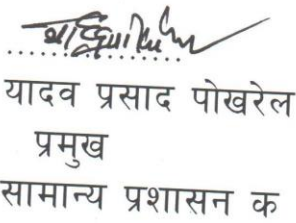 यादव प्रसाद पोखरेल
प्रमुख
सामान्य प्रशासन क